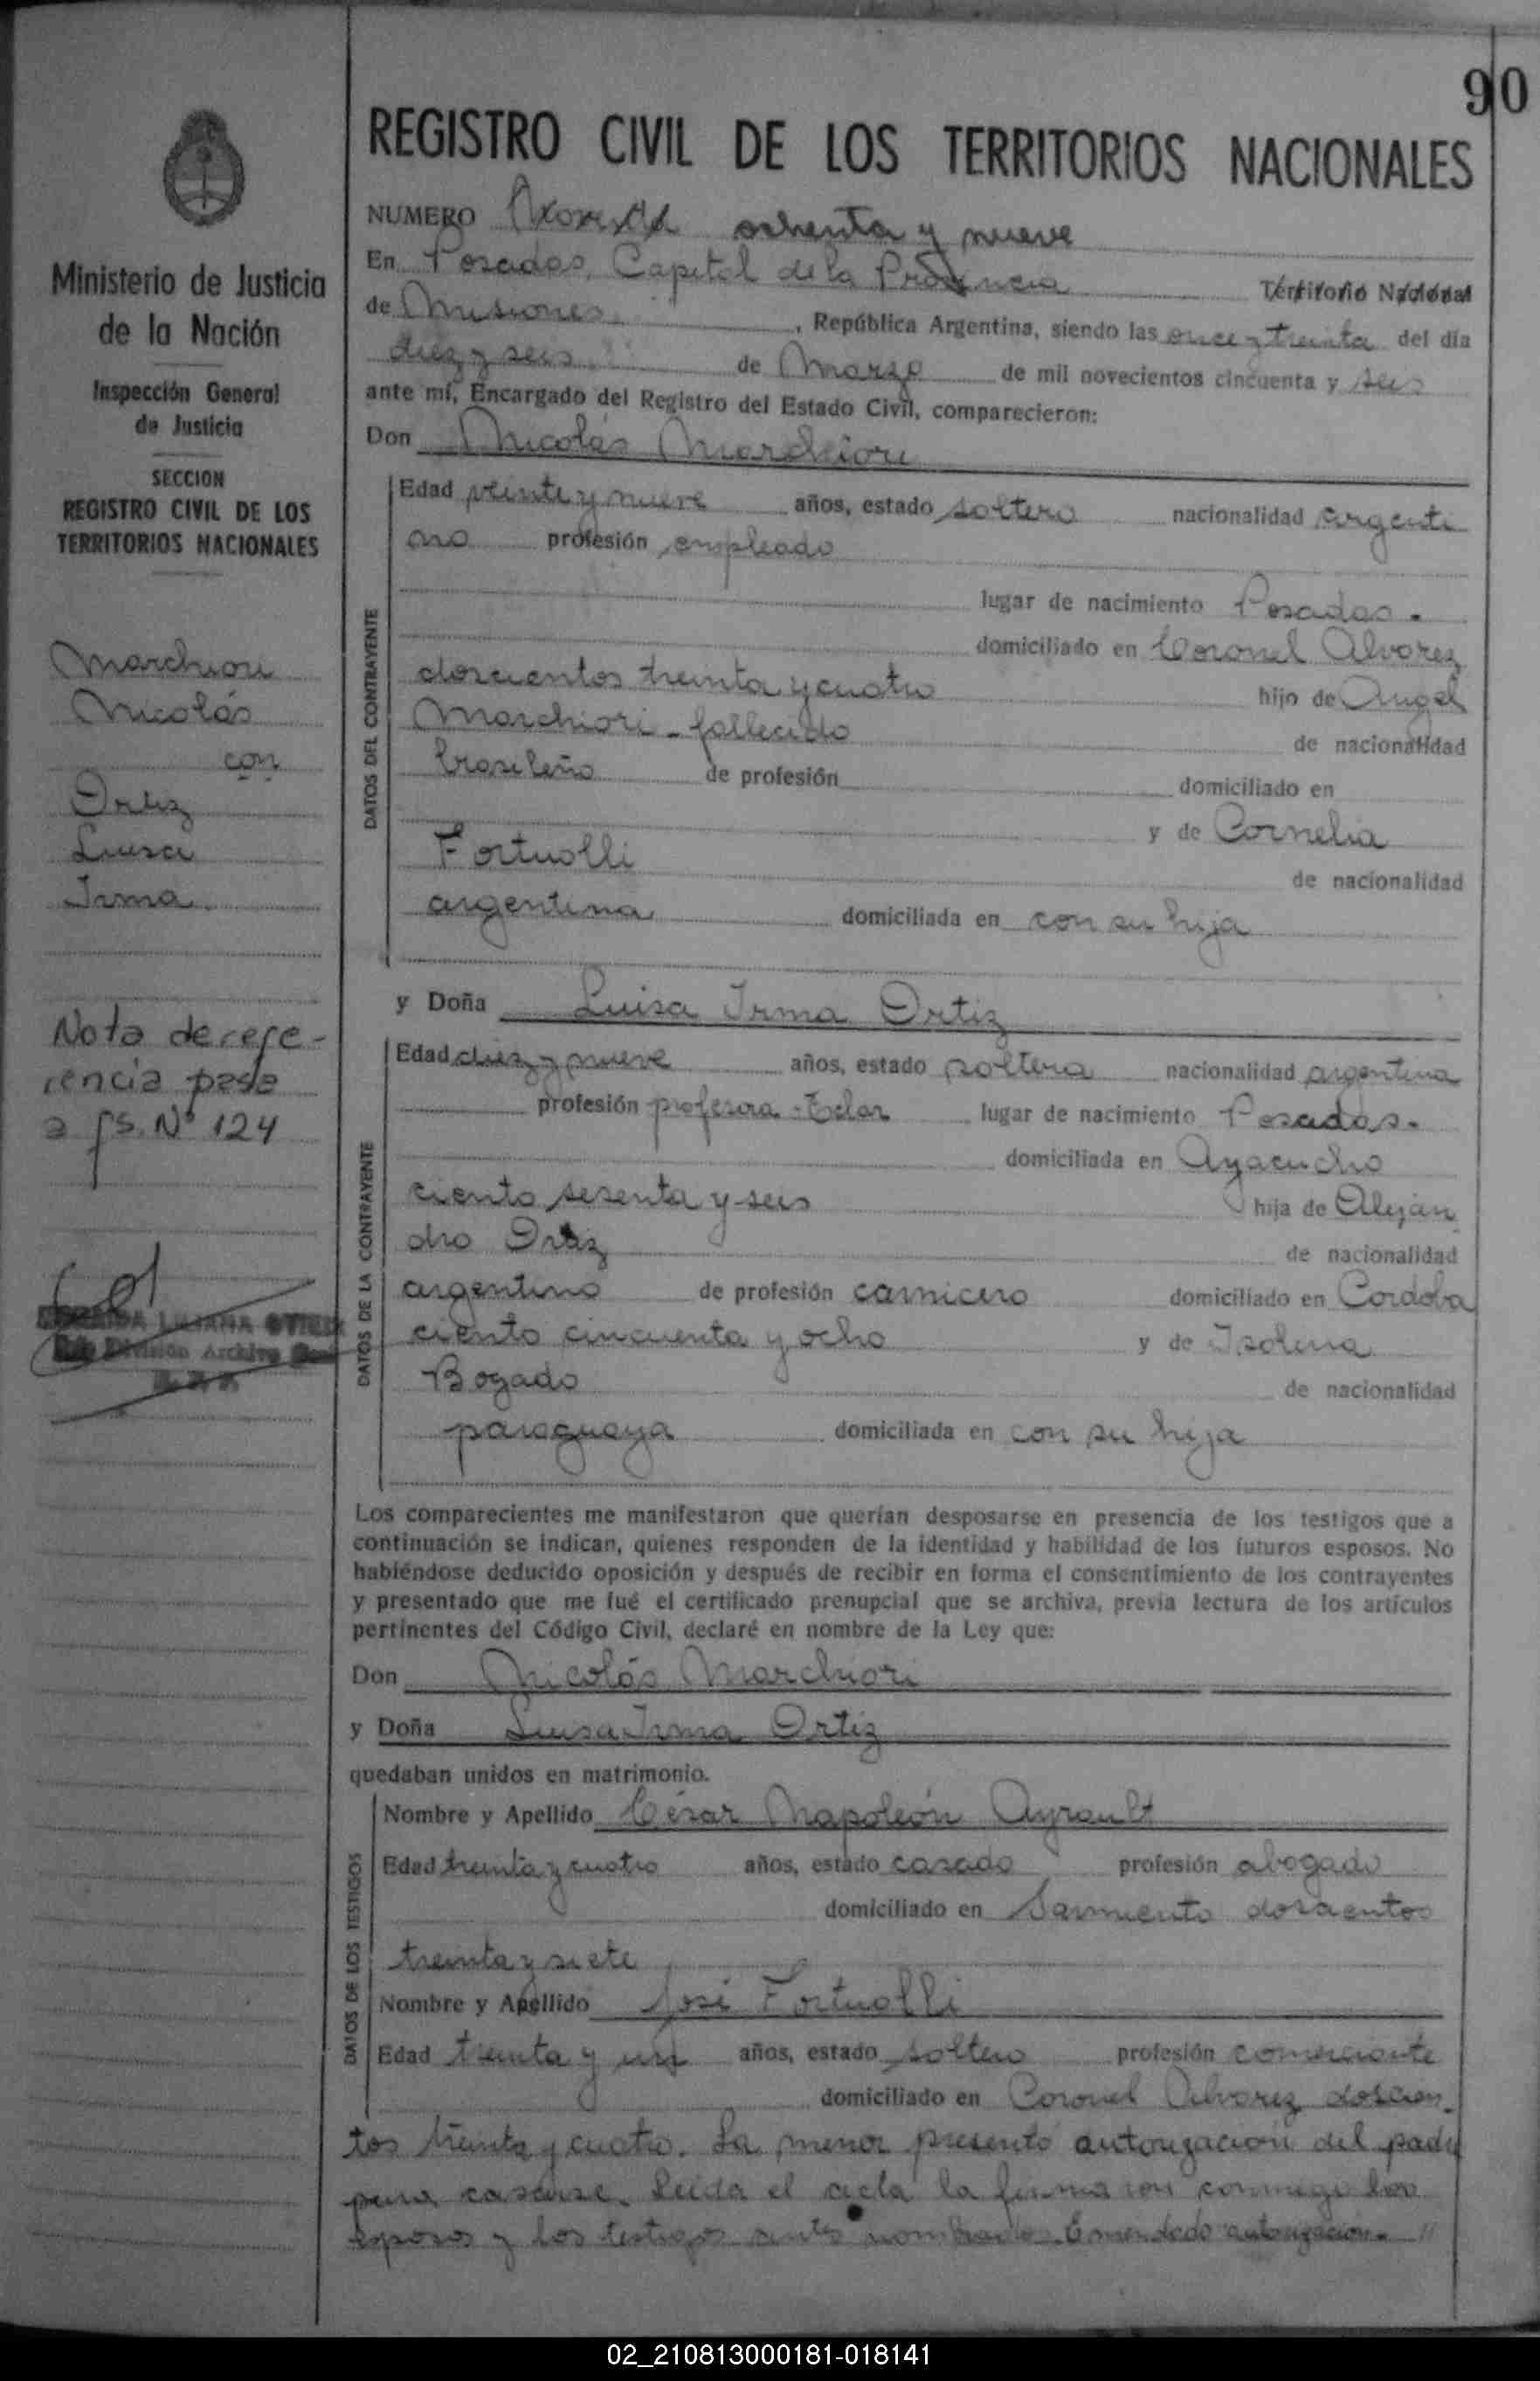 90
REGISTRO CIVIL DE LOS TERRITORIOS NACIONALES
NUMERO Noventa ochenta y nueve
En Posadas, Capital de la Provincia Territorio Nacional
de Misiones, República Argentina, siendo las once y treinta del día
diez y seis de Marzo de mil novecientos cincuenta y seis
ante mí, Encargado del Registro del Estado Civil, comparecieron:
Don Nicolás Marchiori
DATOS DEL CONTRAYENTE
Edad veinte y nueve años, estado soltero nacionalidad argenti
no profesión empleado
lugar de nacimiento Posadas.
domiciliado en Coronel Alvarez
doscientos treinta y cuatro hijo de Angel
Marchiori - fallecido de nacionalidad
brasileño de profesión domiciliado en
y de Cornelia
Fortuolli de nacionalidad
argentina domiciliada en con su hija
y Doña Luisa Irma Ortiz
DATOS DE LA CONTRAYENTE
Edad diez y nueve años, estado soltera nacionalidad argentina
profesión profesora - Eclar lugar de nacimiento Posadas.
domiciliada en Ayacucho
ciento sesenta y seis hija de Alejan
dro Ortiz de nacionalidad
argentino de profesión carnicero domiciliado en Cordoba
ciento cincuenta y ocho y de Isolina
Bogado de nacionalidad
paraguaya domiciliada en con su hija
Los comparecientes me manifestaron que querían desposarse en presencia de los testigos que a
continuación se indican, quienes responden de la identidad y habilidad de los futuros esposos. No
habiéndose deducido oposición y después de recibir en forma el consentimiento de los contrayentes
y presentado que me fué el certificado prenupcial que se archiva, previa lectura de los artículos
pertinentes del Código Civil, declaré en nombre de la Ley que:
Don Nicolás Marchiori
y Doña Luisa Irma Ortiz
quedaban unidos en matrimonio.
DATOS DE LOS TESTIGOS
Nombre y Apellido César Napoleón Ayrault
Edad treinta y cuatro años, estado casado profesión abogado
domiciliado en Sarmiento doscientos
treinta y siete
Nombre y Apellido José Fortuolli
Edad treinta y un años, estado soltero profesión comerciante
domiciliado en Coronel Alvarez doscien
tos treinta y cuatro. La menor presentó autorización del padre
para casarse. Leída el acta la firmaron conmigo los
esposos y los testigos antes nombrados. Enmendado: autorización.
Ministerio de Justicia
de la Nación
Inspección General
de Justicia
SECCION
REGISTRO CIVIL DE LOS
TERRITORIOS NACIONALES
Marchiori
Nicolás
con
Ortiz
Luisa
Irma
Nota de refe-
rencia pasa
a fs. Nº 124
LILIANA
División Archivo
02_210813000181-018141